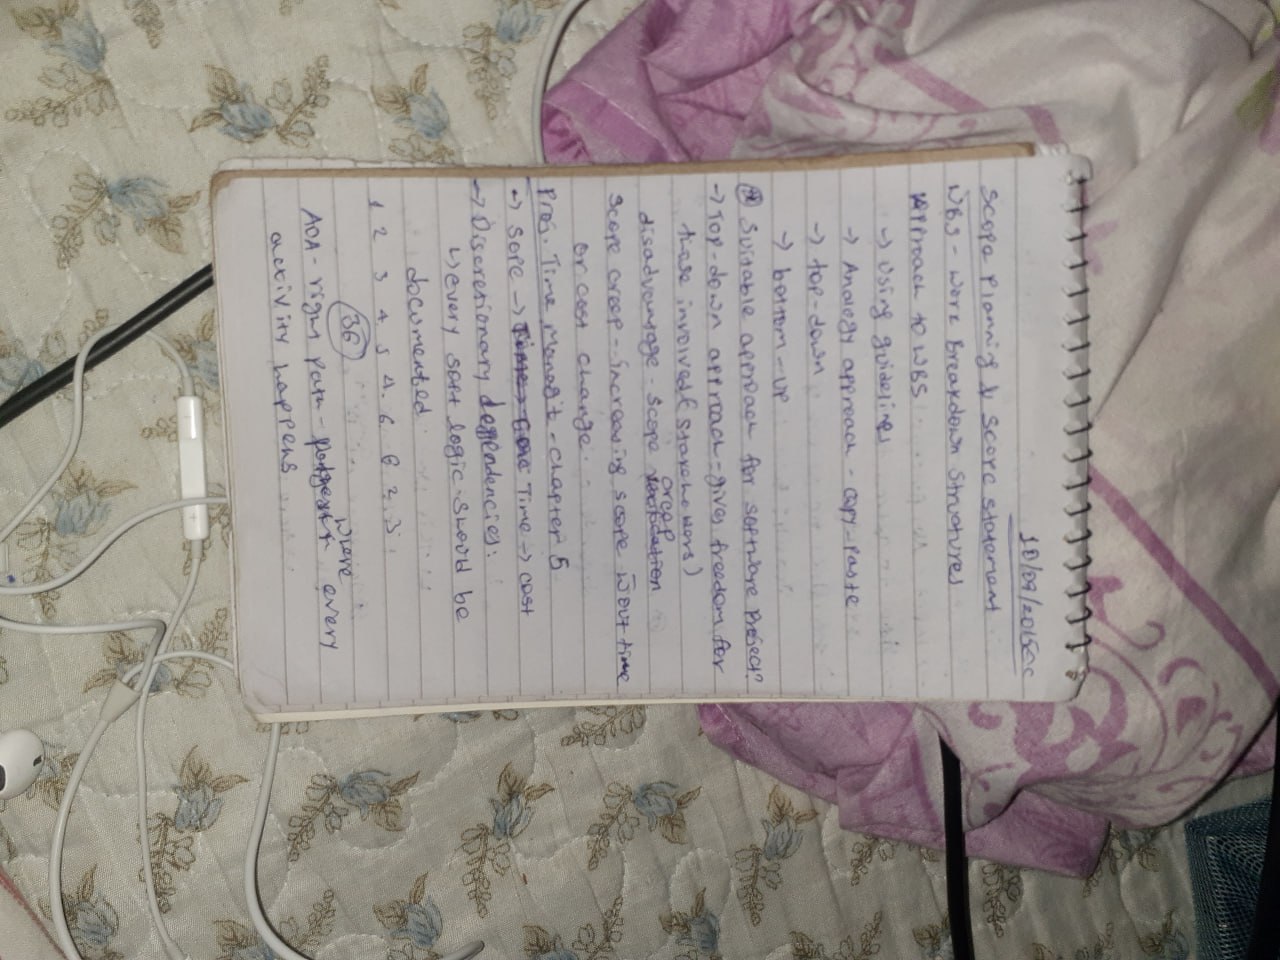 10/09/2015
Scope Planning & Scope statement
WBS - Work Breakdown Structures
Approach to WBS
-> Using guidelines
-> Analogy approach - copy-paste
-> top-down
-> bottom-up
Suitable approach for software project?
-> Top-down approach - gives freedom for
those involved (Stakeholders)
disadvantage - scope creep
Scope creep - Increasing scope w/out time
or cost change.
Proj. Time Manag't - chapter 5
-> Sope -> Time -> cost
-> Discretionary dependencies:
↳ every soft logic should be
documented.
1 2 3 4 5 4 6 6 2 3.
36
AOA - right path - where every
activity happens